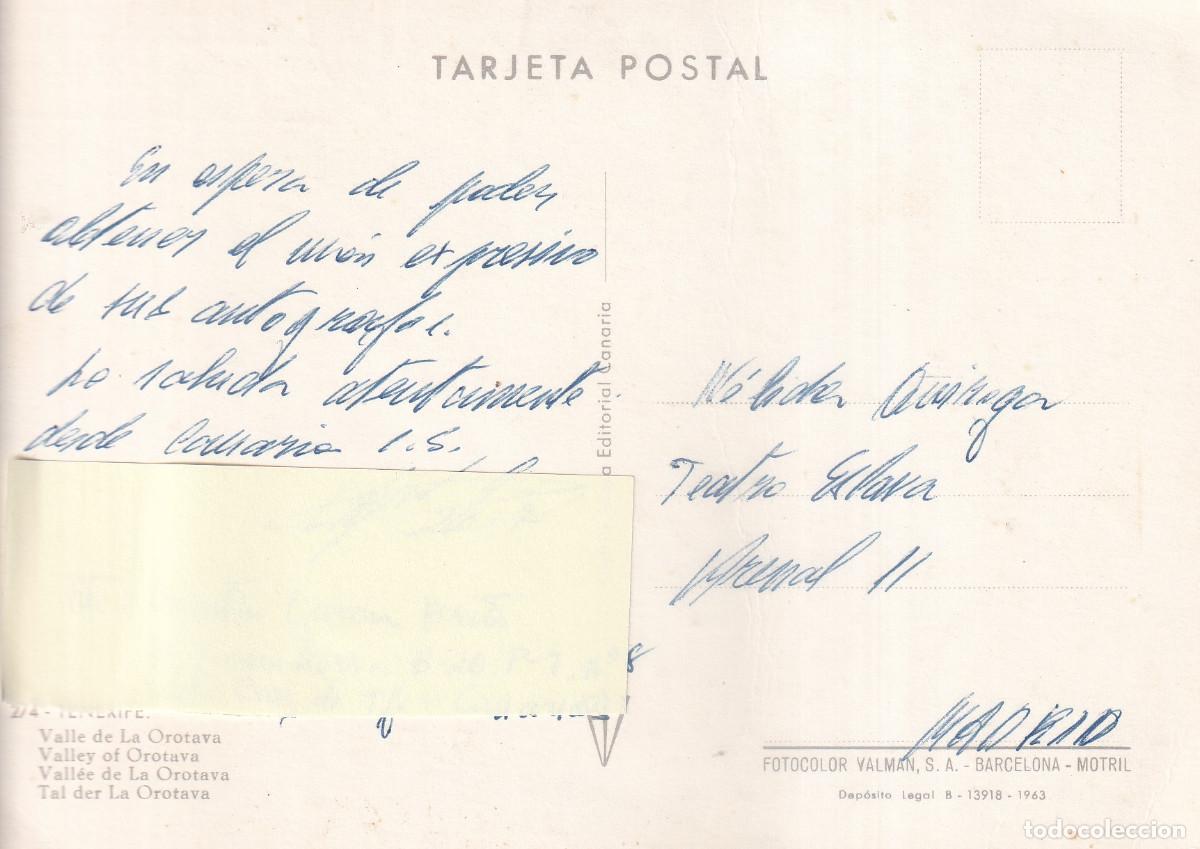 TARJETA POSTAL
En espera de poder
obtener el más expresivo
de sus autografos.
La saluda atentamente
desde Canaria 1.S.
a Editorial Canaria
Nélida Quiroga
Teatro Eslava
Arenal 11
MADRID
8
274 - TENERIFE.
Valle de La Orotava
Valley of Orotava
Vallée de La Orotava
Tal der La Orotava
FOTOCOLOR VALMAN, S. A. - BARCELONA - MOTRIL
Depósito Legal B - 13918 - 1963
todocoleccion